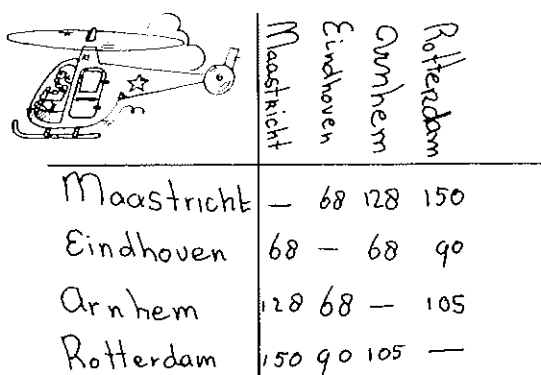 Maastricht Eindhoven Arnhem Rotterdam
Maastricht — 68 128 150
Eindhoven 68 — 68 90
Arnhem 128 68 — 105
Rotterdam 150 90 105 —